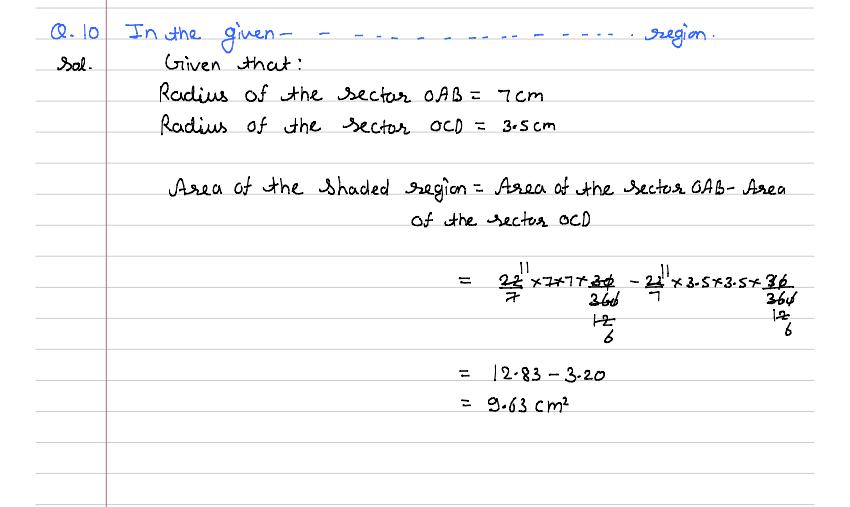 Q. 10 In the given- - - - - - - - - - - - - - - - . region.
Sol. Given that:
Radius of the sector OAB = 7cm
Radius of the sector OCD = 3.5cm
Area of the shaded region = Area of the sector OAB- Area
of the sector OCD
= 22/7 11 ×7×7× 30/360 12 6 - 22/7 11 ×3.5×3.5× 30/360 12 6
= 12.83 - 3.20
= 9.63 cm²